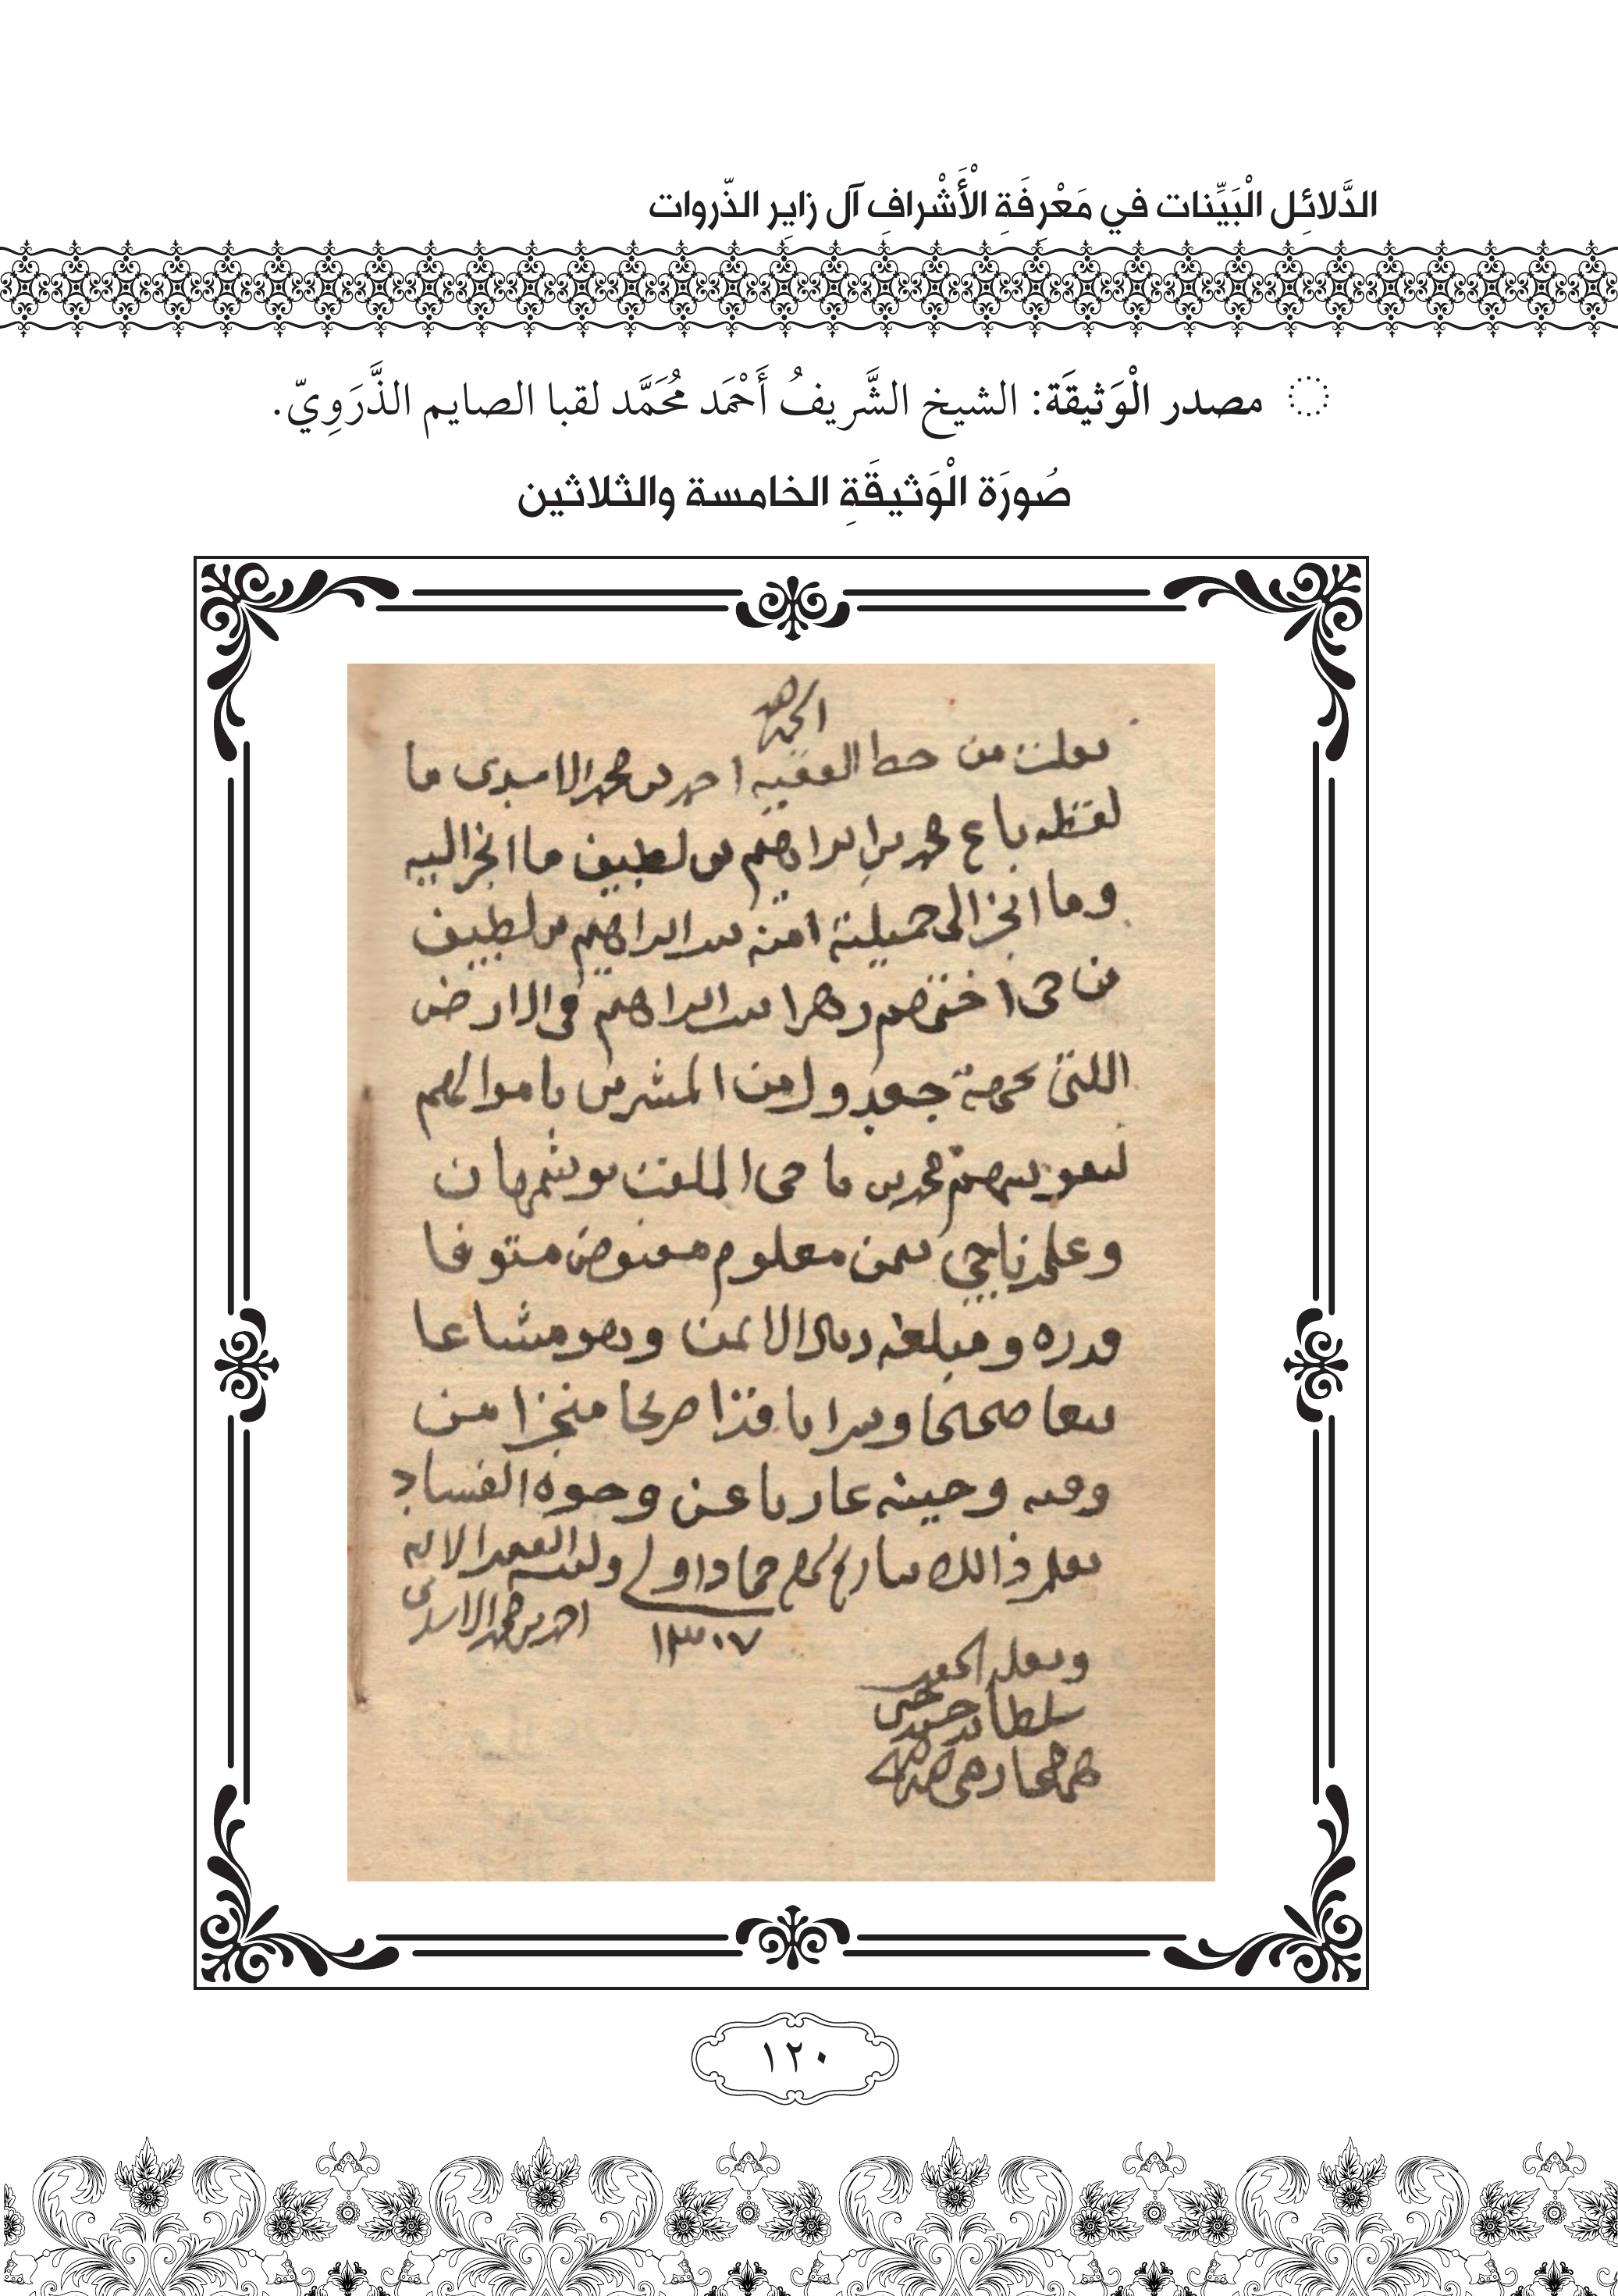 الدَّلائِل الْبَيِّنات في مَعْرِفَةِ الْأَشْرافِ آل زايِر الذّروات
مصدر الْوَثيقَة: الشيخ الشَّريفُ أَحْمَد مُحَمَّد لقبا الصايم الذَّرَوِيّ.
صُورَة الْوَثيقَةِ الخامسة والثلاثين
الحمد لله
نقلت من خط الفقيه احمد بن محمد الاسدى ما
لفظه باع محمد بن ابراهيم بن لطيف ما انجز اليه
وما انجز الى حميلته امنه بنت ابراهيم بن لطيف
من حق اختهم زهرا بنت ابراهيم في الارض
اللتي بجهة جعدول من المشرق باموالهم
محمد بن الملقب بوشمهان
وعلي ناجي بثمن معلوم مقبوض متوفا
قدره ومبلغه ريال الا ثمن وهو مشاعا
بيعا صحيحا وشرا نافذا صريحا منجزا من
وقته وحينه عاريا عن وجوه الفساد
نقل ذالك بتاريخ شهر جماد اولى
١٣٠٧
احمد بن محمد الاسدى
ونقله الحقير
سلطان
١٢٠